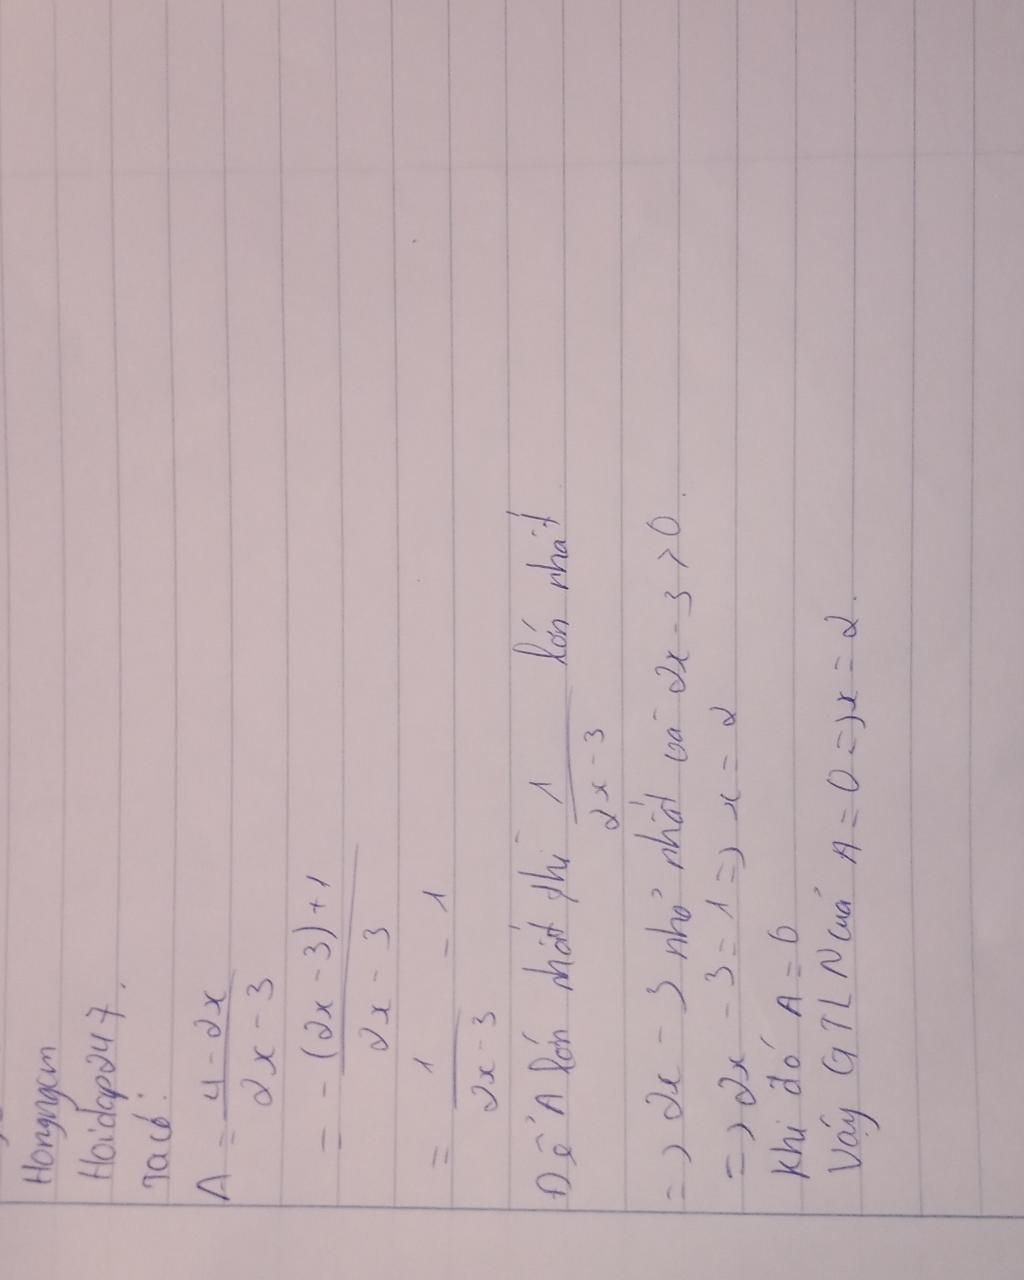 Hongngam
Hoidap247.
Ta có:
A = 4 - 2x / 2x - 3
= -(2x - 3) + 1 / 2x - 3
= 1 / 2x - 3 - 1
Để A lớn nhất thì 1 / 2x - 3 lớn nhất
=> 2x - 3 nhỏ nhất và 2x - 3 > 0.
=> 2x - 3 = 1 => x = 2
Khi đó A = 0
Vậy GTLN của A = 0 => x = 2.